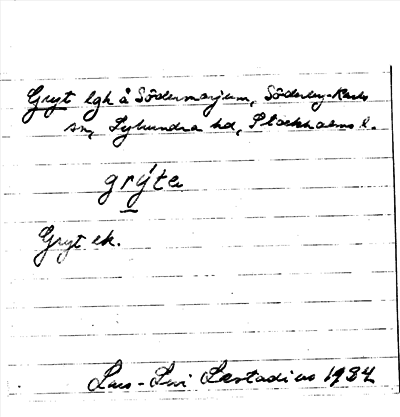 Gryt lgh å Södermarjum, Söderby-Karls
sn, Lyhundra hd, Stockholms l.
grýte
Gryt ek.
Lars-Levi Læstadius 1934